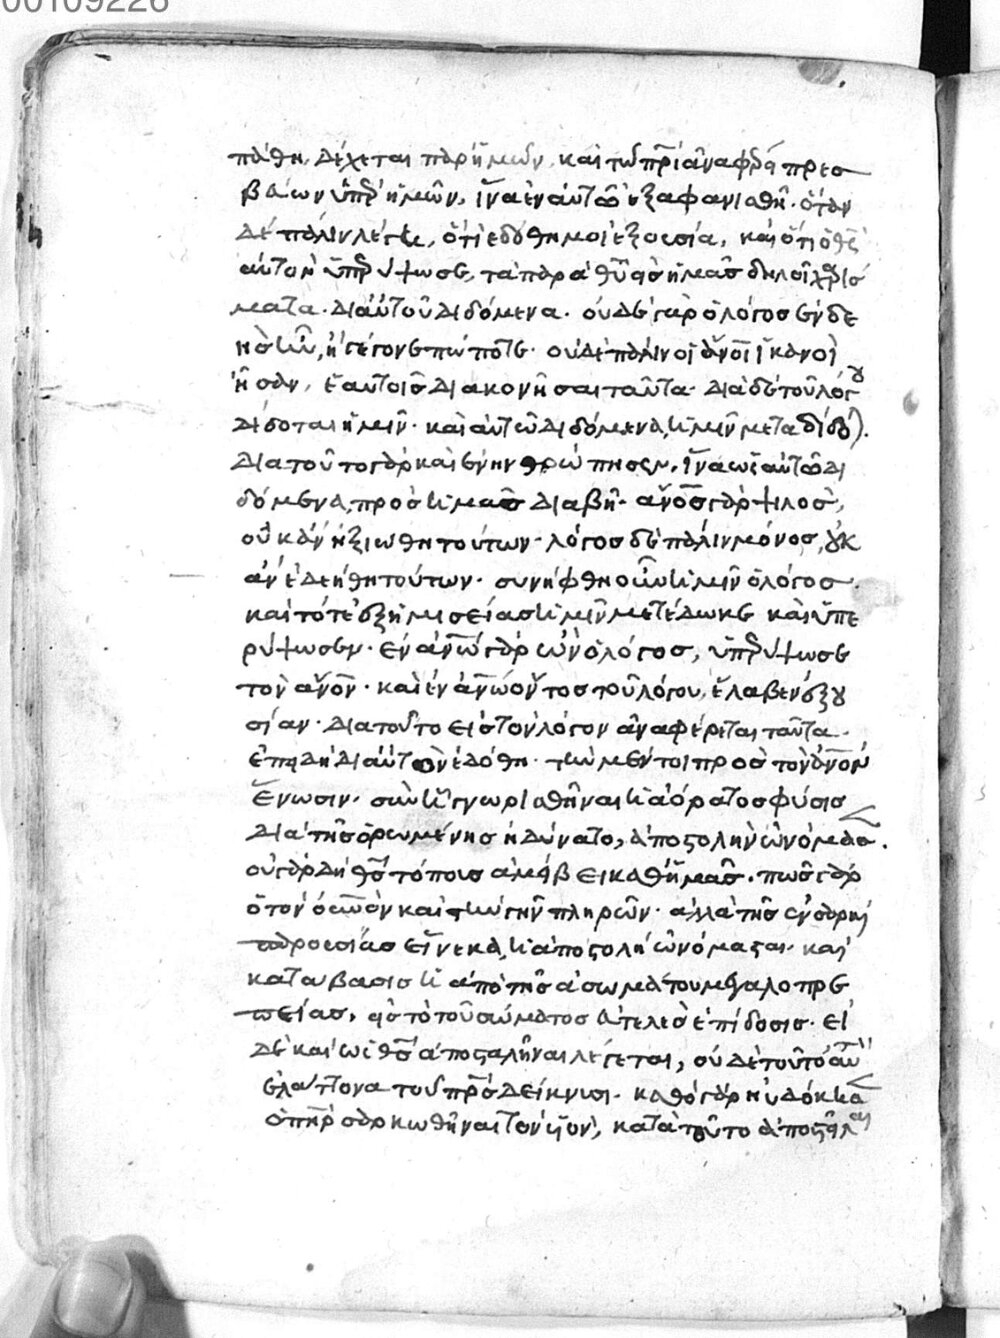 00109226
πάθη, δέχεται παρ' ἡμῶν, καὶ τῶ πρὶ ἀναφέρει πρεσ
βεύων ὑπὲρ ἡμῶν, ἵνα ἐν αὐτῶ ἐξαφανισθῆ· ὅταν
δὲ πάλιν λέγει, ὅτι ἐδόθη μοι ἐξουσία, καὶ ὅτι ὁ θς
αὐτὸν ὑπερύψωσε, τὰ παρὰ θῦ εἰς ἡμᾶς δηλοῖ χαρίσ
ματα· δι' αὐτοῦ διδόμενα· οὐδὲ γὰρ ὁ λόγος ἐνδε
ὴς ἦν, ἢ γέγονε πώποτε· οὐδὲ πάλιν οἱ ἄνοι ἱκανοὶ
ἦσαν, ἑαυτοῖς διακονῆσαι ταῦτα· διὰ δὲ τοῦ λόγου
δίδοται ἡμῖν· καὶ αὐτῶ διδόμενα, ἡμῖν μεταδίδο
διὰ τοῦτο γὰρ καὶ ἐνηνθρώπησεν, ἵνα ὡς αὐτῶ δι
δόμενα, πρὸς ἡμᾶς διαβῆ· ἄνος γὰρ ψιλὸς,
οὐκ ἂν ἠξιώθη τούτων· λόγος δὲ πάλιν μόνος, οὐκ
ἂν ἐδεήθη τούτων· συνήφθη οὖν ἡμῖν ὁ λόγος·
καὶ τότε ἐξουσίας ἡμῖν μετέδωκε καὶ ὑπε
ρύψωσεν· ἐν ἀνω γὰρ ὢν ὁ λόγος, ὑπερύψωσε
τὸν ἄνον· καὶ ἐν ἀνω ὄντος τοῦ λόγου, ἔλαβεν ἐξου
σίαν· διὰ τοῦτο εἰς τὸν λόγον ἀναφέρεται ταῦτα·
ἐπειδὴ δι' αὐτὸν ἐδόθη· τὴν μέντοι πρὸς τὸν ἄνον
ἕνωσιν· σὺν ἧ γνωρισθῆναι ἡ ἀόρατος φύσις
διὰ τῆς ὁρωμένης ἠδύνατο, ἀποστολὴν ὠνόμασε.
οὐ γὰρ δὴ θς τόπους ἀμείβει καθ' ἡμᾶς· πῶς γὰρ
ὅ τὸν ὀυνον καὶ τὴν γῆν πληρῶν· ἀλλὰ τῆς ἐνσάρκου
παρουσίας εἵνεκα, ἡ ἀποστολὴ ὠνόμασται· καὶ
κατάβασις ἡ ἀπὸ τῆς ἀσωμάτου μεγαλοπρε
πείας, εἰς τὸ τοῦ σώματος ἀτελὲς ἐπίδοσις· εἰ
δὲ καὶ ὡς θς ἀποσταλῆναι λέγεται, οὐδὲ τοῦτο αὐτὸν
ἐλάττονα τοῦ πρς δείκνυσι· καθὸ γὰρ ηὐδόκησεν
ὁ πηρ σαρκωθῆναι τὸν υἱὸν, κατὰ τοῦτο ἀποσταλῆναι